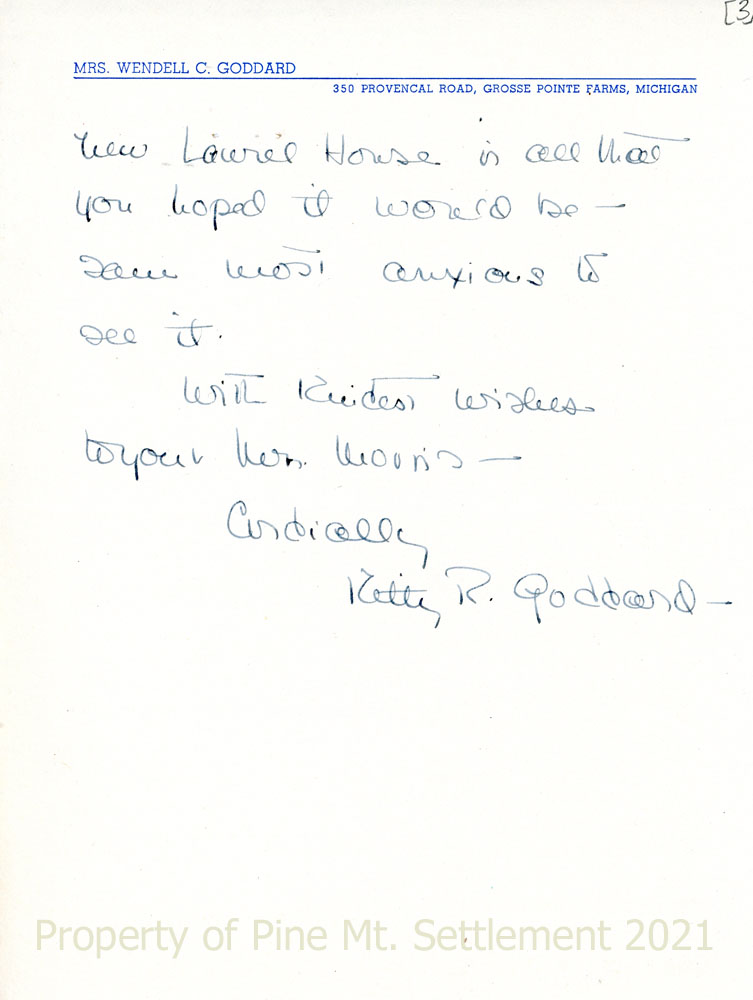 [3]
MRS. WENDELL C. GODDARD
350 PROVENCAL ROAD, GROSSE POINTE FARMS, MICHIGAN
new Laurel House is all that
you hoped it would be —
I am most anxious to
see it.
With kindest wishes
to you & Mrs. Morris —
Cordially
Kitty R. Goddard —
Property of Pine Mt. Settlement 2021